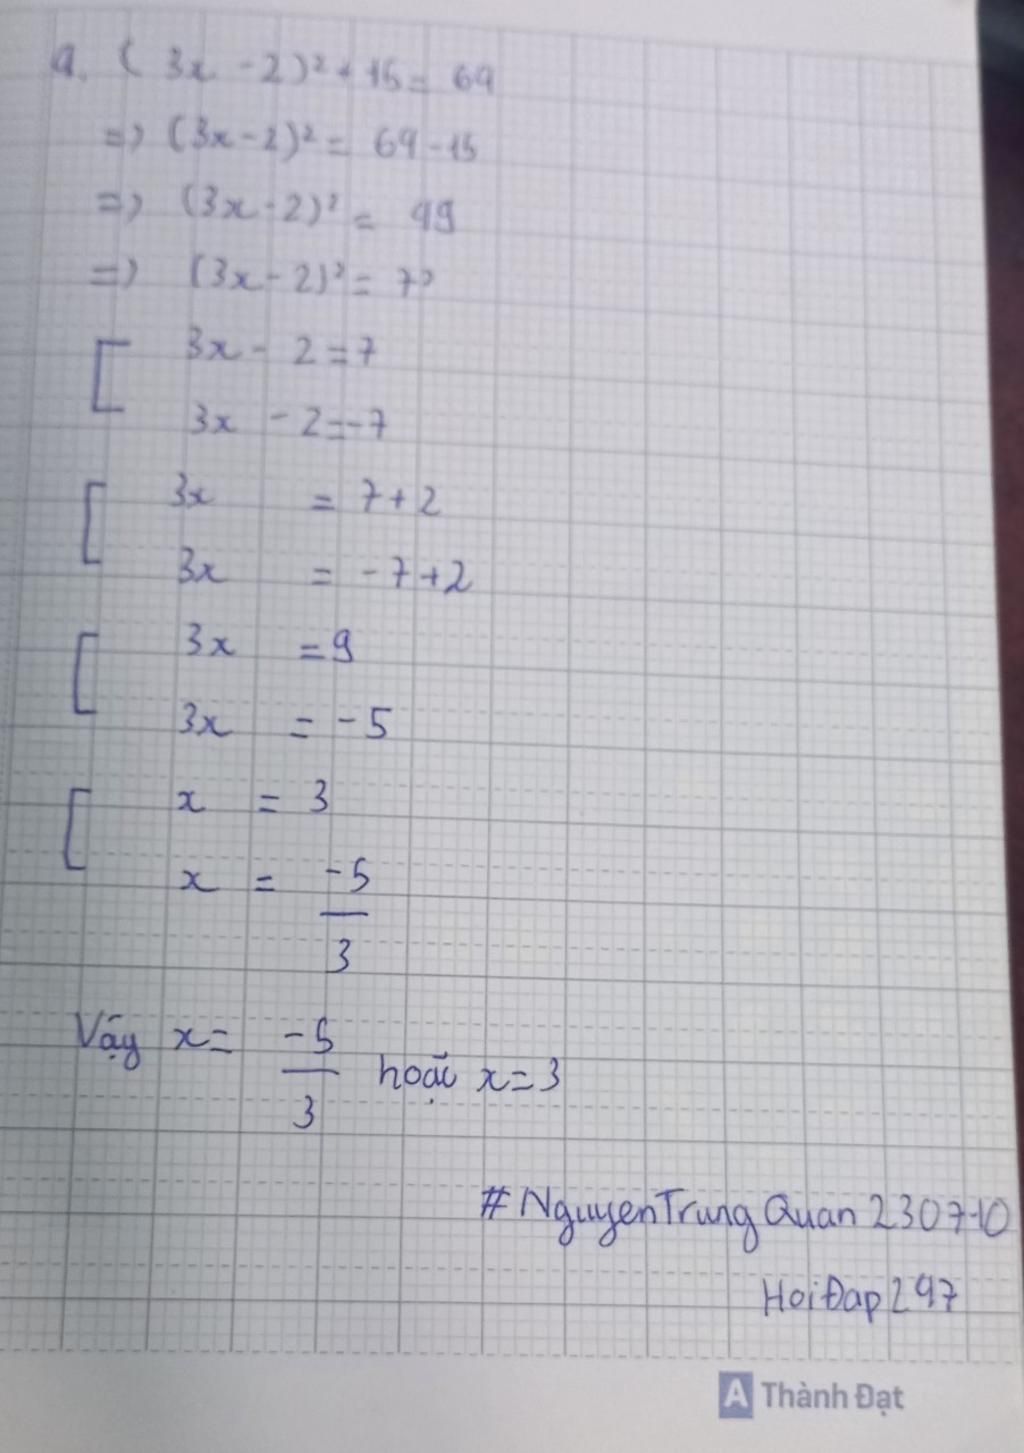 a. (3x - 2)² + 15 = 64
=> (3x - 2)² = 64 - 15
=> (3x - 2)² = 49
=> (3x - 2)² = 7²
[ 3x - 2 = 7
3x - 2 = -7
[ 3x = 7 + 2
3x = -7 + 2
[ 3x = 9
3x = -5
[ x = 3
x = -5/3
Vậy x = -5/3 hoặc x = 3
#NguyenTrungQuan230710
HoiĐap247
A Thành Đạt